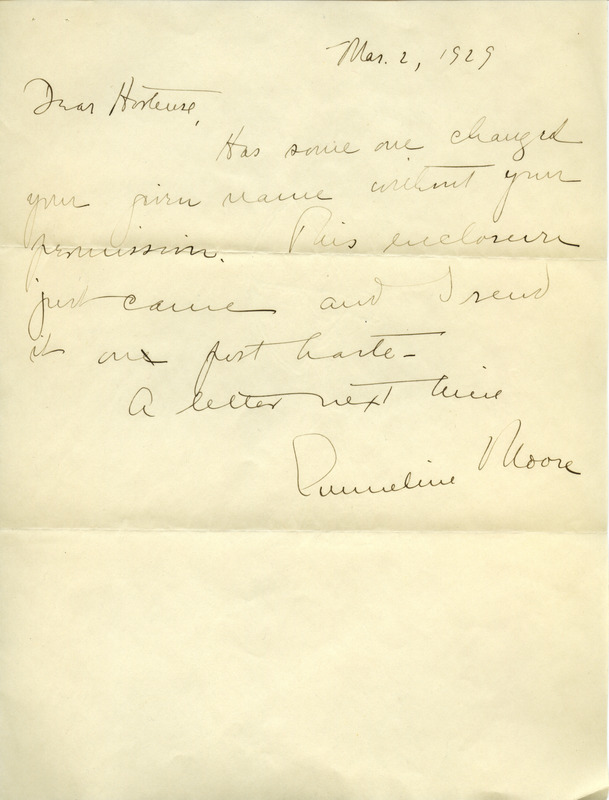 Mar. 2, 1929
Dear Hortense,
Has some one changed
your given name without your
permission. This enclosure
just came and I send
it on post haste –
A letter next time
Emmeline Moore